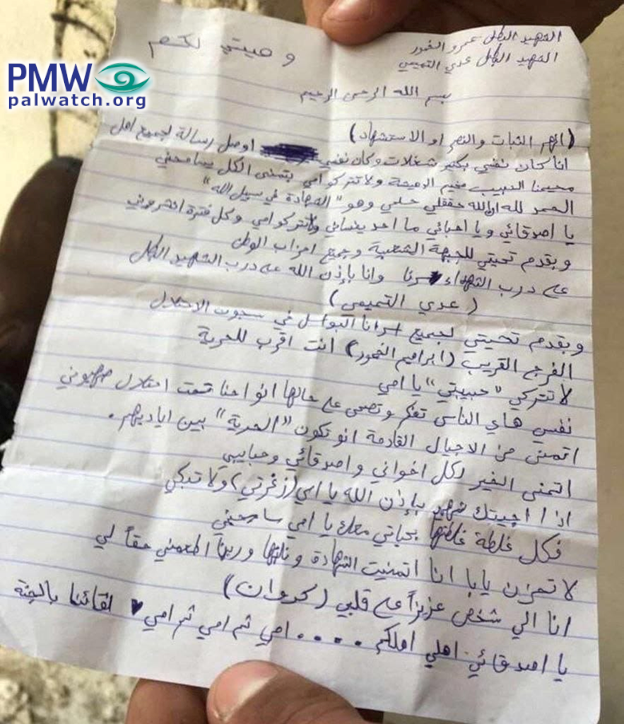 PMW
palwatch.org
الشهيد البطل عمرو الخمور
الشهيد البطل عدي التميمي
وصيتي لكم
بسم الله الرحمن الرحيم
(اللهم الثبات والنصر او الاستشهاد)
انا كان نفسي بكثير شغلات وكان نفسي اوصل رسالة لجميع اهل
مخيمنا الحبيب مخيم الدهيشة ولا تتركو امي بتمنى الكل يسامحني
الحمد لله ان الله حققلي حلمي وهو "الشهادة في سبيل الله"
يا اصدقائي ويا احبائي ما احد ينساني ولا تتركو امي وكل فترة
وبقدم تحيتي للجبهة الشعبية وجميع احزاب الوطن
على درب الشهداء سرنا وانا بإذن الله على درب الشهيد البطل
(عدي التميمي)
وبقدم تحيتي لجميع اسرانا البواسل في سجون الاحتلال
الفرج القريب (ابراهيم الخمور) انت اقرب للحرية
لا تتركي "حبيبتي" يا امي
نفسي هاي الناس تفكر وتصحى على حالها انو احنا تحت احتلال صهيوني
اتمنى من الاجيال القادمة انو تكون "الحرية" بين اياديهم.
اتمنى الخير لكل اخواني واصدقائي وحبايبي
اذا اجيتك شهيد بإذن الله يا امي (زغرتي) ولا تبكي
فكل غلطة غلطتها بحياتي معك يا امي سامحيني
لا تحزن يابا انا اتمنيت الشهادة ونلتها وربنا حقا لي
انا الي شخص عزيزاً على قلبي (كروان)
يا اصدقائي اهلي اهلكم .... امي ثم امي ثم امي لقائنا بالجنة